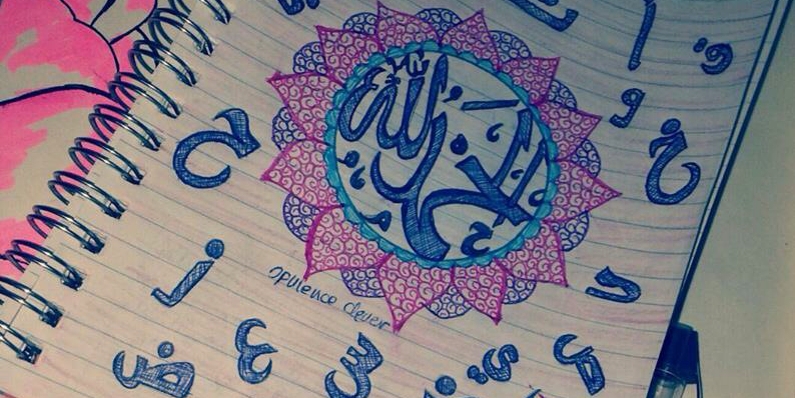 أ
و
خ
ح
الحمد لله
د
ز
opulence clever
ض
ع
س
ي
ص